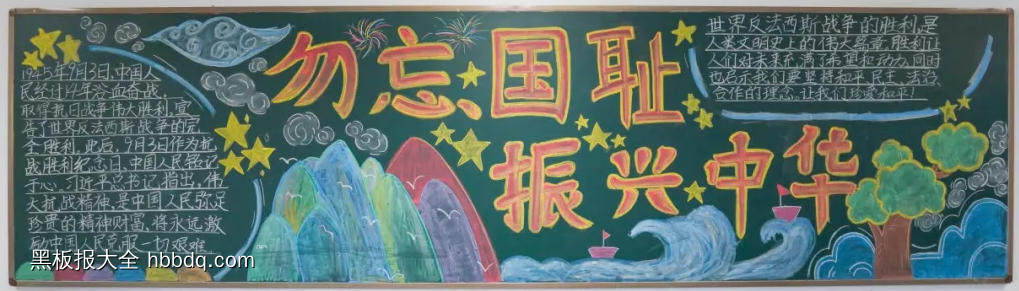 勿忘国耻
振兴中华
1945年9月3日,中国人
民经过14年浴血奋战,
取得抗日战争伟大胜利,宣
告了世界反法西斯战争的完
全胜利,此后,9月3日作为抗
战胜利纪念日,中国人民铭记
于心,习近平总书记指出,伟
大抗战精神,是中国人民弥足
珍贵的精神财富,将永远激
励中国人民克服一切艰难
世界反法西斯战争的胜利,是
人类文明史上的伟大篇章,胜利让
人们对未来充满了希望和动力,同时
也启示我们要坚持和平、民主、法治、
合作的理念,让我们珍爱和平!
黑板报大全 hbbdq.com